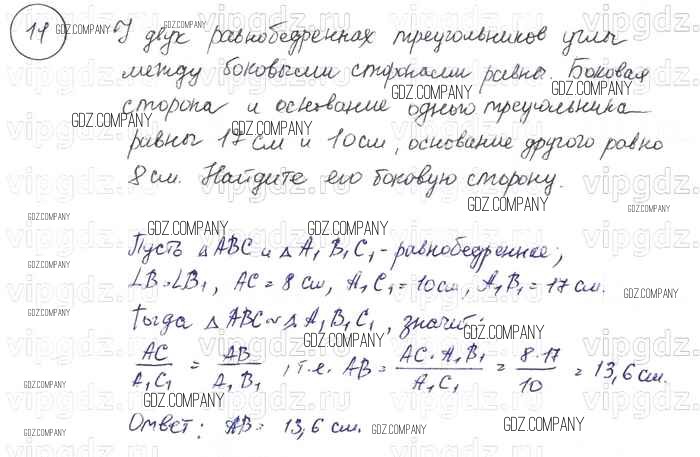 19 У двух равнобедренных треугольников углы
между боковыми сторонами равны. Боковая
сторона и основание одного треугольника
равны 17 см и 10 см, основание другого равно
8 см. Найдите его боковую сторону.
Пусть △ ABC и △ A₁B₁C₁ - равнобедренные,
∠B = ∠B₁, AC = 8 см, A₁C₁ = 10 см, A₁B₁ = 17 см.
Тогда △ ABC ~ △ A₁B₁C₁, значит:
AC/A₁C₁ = AB/A₁B₁, т.е. AB = AC·A₁B₁/A₁C₁ = 8·17/10 = 13,6 см.
Ответ: AB = 13,6 см.